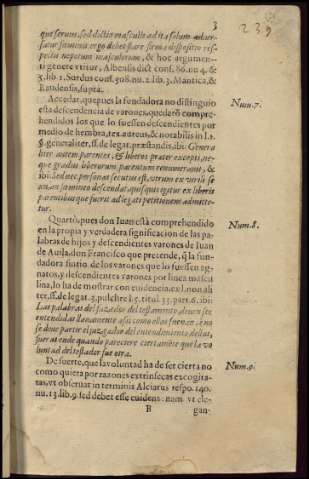 3
239
que serum, sed dictio masculis ad ita solum adver-
satur fœminis ergo debet stare firma dispositio res-
pectu nepotum masculorum, & hoc argumen-
ti genere vtitur, Albensis dict. cons. 86. nu. 4. &
5. lib. 1. Surdus cons. 308. nu. 2. lib. 3. Mantica, &
Raudensis, suprà.
Accedat, que pues la fundadora no distinguio
esta descendencia de varones, quedarõ compre-
hendidos los que lo fuessen descendientes por
medio de hembra, tex. aureus, & notabilis in l. 1.
§. generaliter, ff. de legat. præstandis, ibi: Genera
liter autem parentes, & liberos prater excepit, ne-
que gradus liberorum parentum renumerauit, &
ibi: Sed nec personas secutus est, vtrum ex virili se
xu, an fœminino descendat quisquis igitur ex liberis
parentibusque fuerit ad legati petitionem admitte-
tur.
Num. 7.
Quarto, pues don Iuan està comprehendido
en la propia y verdadera significacion de las pa-
labras de hijos y descendientes varones de Iuan
de Auila, don Francisco que pretende, q̃ la fun-
dadora sintio de los varones que lo fuessen ag-
natos, y descendientes varones por linea mascu
lina, lo ha de mostrar con euidencia ex l. non ali
ter, ff. de legat. 3. pulchre l. 5. titul. 33. part. 6. ibi:
Las palabras del fazedor del testamento deuen ser
entendidas llanamente assi como ellas suenan, e no
se deue partir el juzgador del entendimiento dellas,
fueras ende quando pareciere ciertamente que la vo
luntad del testador fue otra.
Num. 8.
De suerte, que la voluntad ha de ser cierta no
como quiera por razones extrinsecas excogita-
tas, vt obseruat in terminis Alciatus respo. 140.
nu. 13. lib. 9. sed debet esse euidens: nam vt ele-
Num. 9.
B
gan-